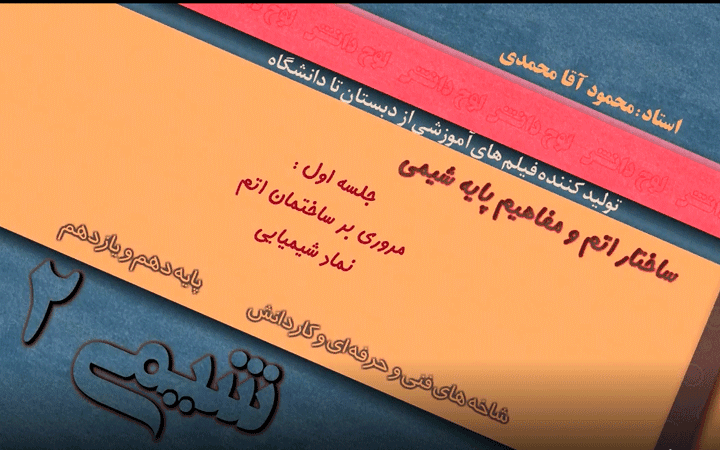 استاد : محمود آقا محمدی
لوح دانش لوح دانش لوح دانش لوح دانش لوح دانش لوح دانش
تولید کننده فیلم های آموزشی از دبستان تا دانشگاه
ساختار اتم و مفاهیم پایه شیمی
جلسه اول :
مروری بر ساختمان اتم
نماد شیمیایی
پایه دهم و یازدهم
شاخه های فنی و حرفه ای و کاردانش
شیمی ۲